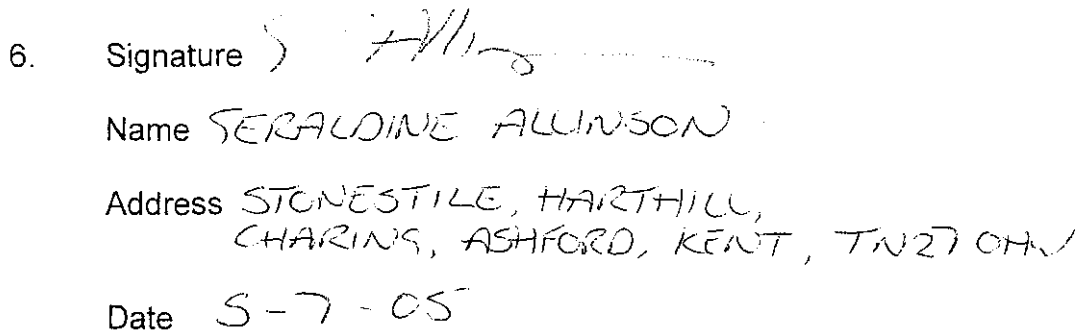 6. Signature
Name GERALDINE ALLINSON
Address STONESTILE, HARTHILL,
CHARING, ASHFORD, KENT, TN27 0HW
Date 5-7-05